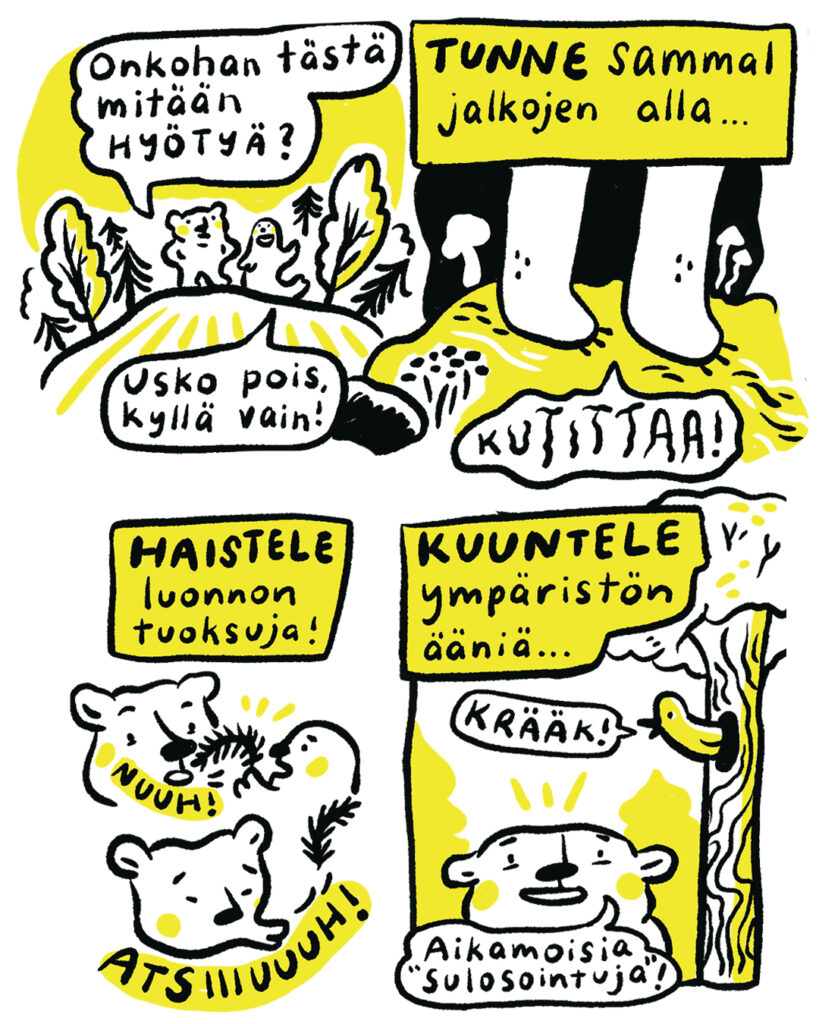 Onkohan tästä
mitään
HYÖTYÄ?
Usko pois,
kyllä vain!
TUNNE sammal
jalkojen alla...
KUTITTAA!
HAISTELE
luonnon
tuoksuja!
NUUH!
ATSIIIUUUH!
KUUNTELE
ympäristön
ääniä...
KRÄÄK!
Aikamoisia
"sulosointuja"!